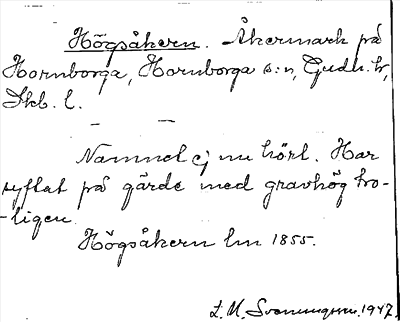 Högsåkern. Åkermark på
Hornborga, Hornborga s:n, Gudh. hd,
Skb. l.
Namnet ej nu hört. Har
syftat på gärde med gravhög tro-
-ligen.
Högsåkern Lm 1855.
L. M. Svanungsson. 1947.